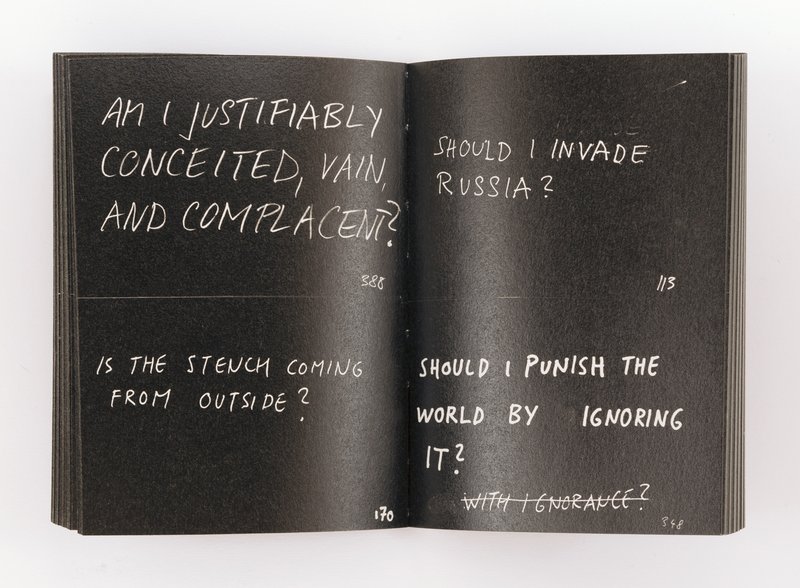 AM I JUSTIFIABLY
CONCEITED, VAIN,
AND COMPLACENT?
388
IS THE STENCH COMING
FROM OUTSIDE?
170
SHOULD I INVADE
RUSSIA?
113
SHOULD I PUNISH THE
WORLD BY IGNORING
IT?
WITH IGNORANCE?
348